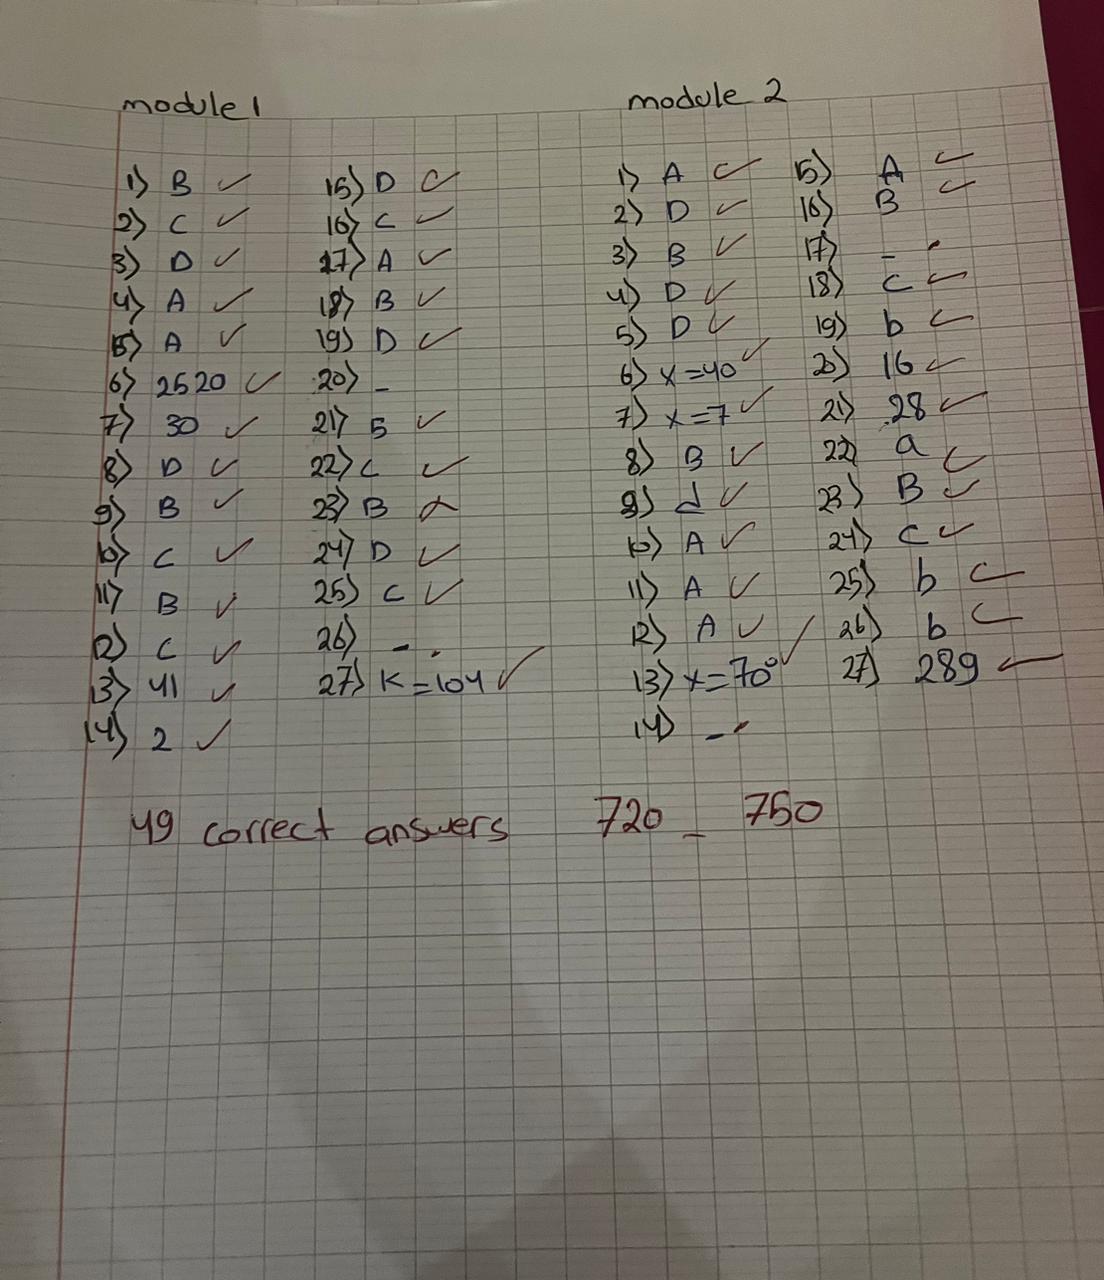 module 1
1) B ✓
2) C ✓
3) D ✓
4) A ✓
5) A ✓
6) 2520 ✓
7) 30 ✓
8) D ✓
9) B ✓
10) C ✓
11) B ✓
12) C ✓
13) 41 ✓
14) 2 ✓
15) D ✓
16) C ✓
17) A ✓
18) B ✓
19) D ✓
20) _
21) 5 ✓
22) C ✓
23) B ✗
24) D ✓
25) C ✓
26) _ .
27) K = 104 ✓
module 2
1) A ✓
2) D ✓
3) B ✓
4) D ✓
5) D ✓
6) x = 40 ✓
7) x = 7 ✓
8) B ✓
9) d ✓
10) A ✓
11) A ✓
12) A ✓
13) x = 70° ✓
14) _ .
15) A ✓
16) B ✓
17) _ .
18) C ✓
19) b ✓
20) 16 ✓
21) 28 ✓
22) a ✓
23) B ✓
24) C ✓
25) b ✓
26) b ✓
27) 289 ✓
49 correct answers 720 _ 750